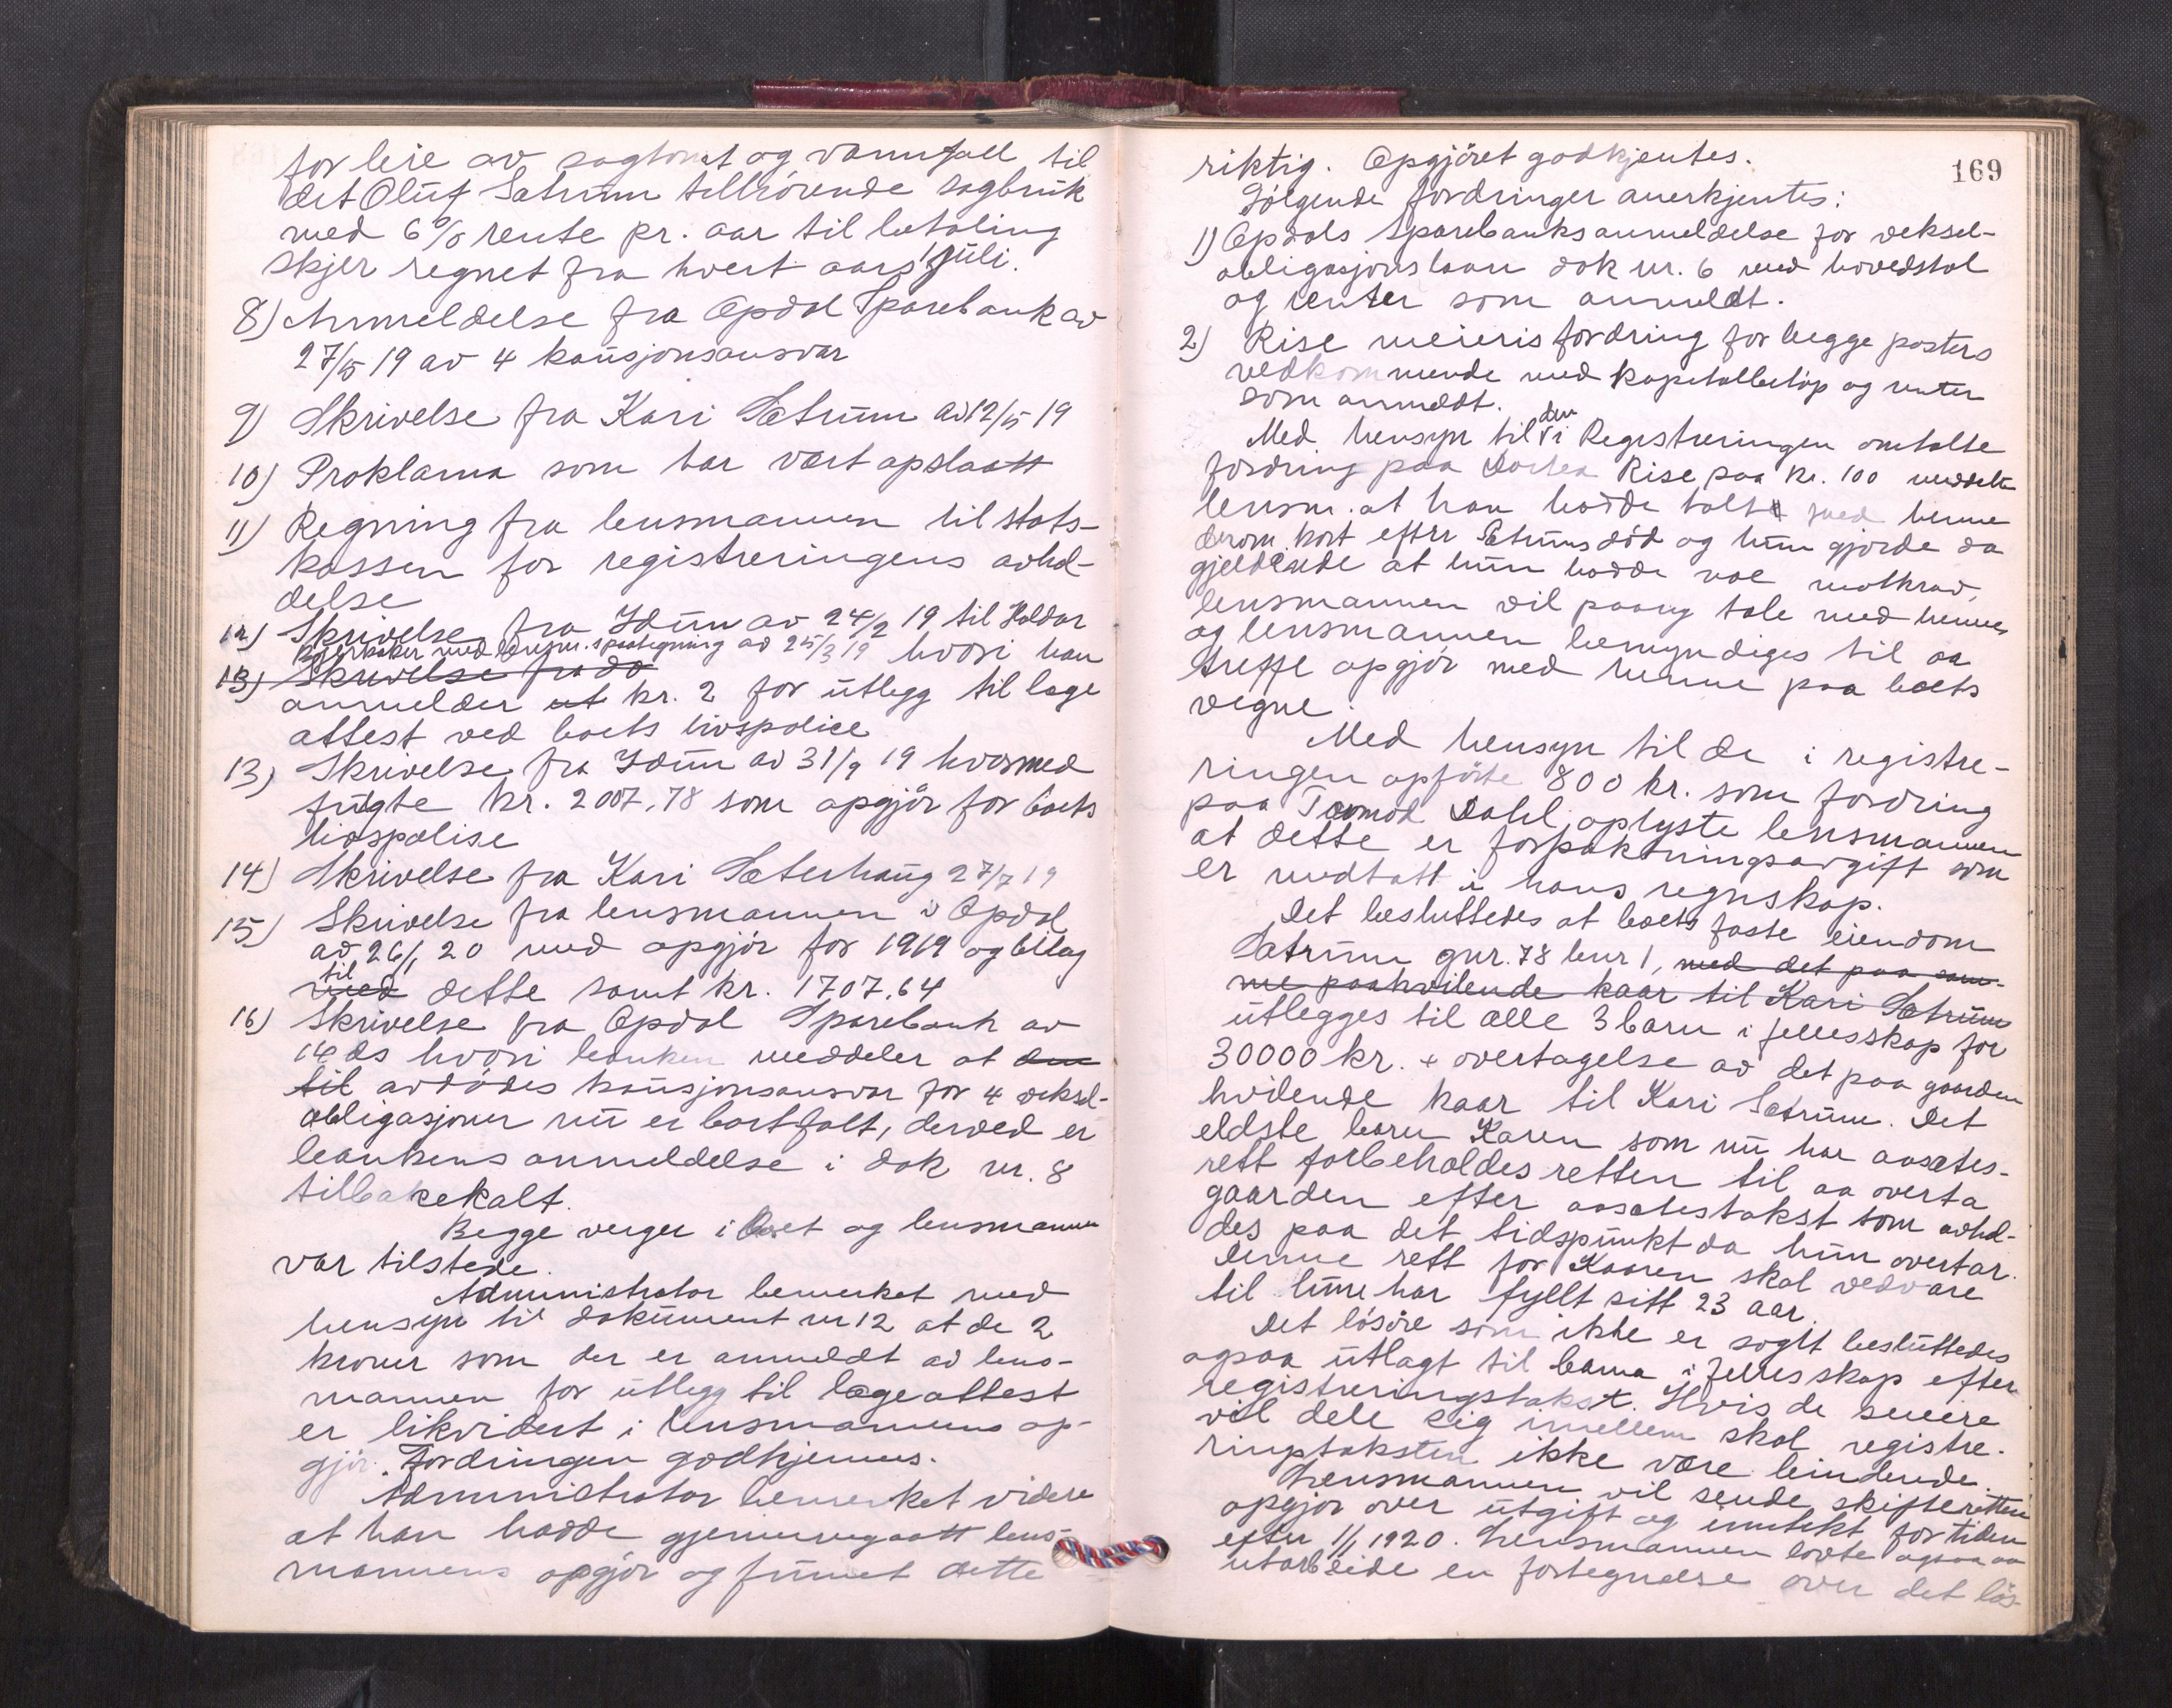 for leie av sagtomt og vannfall til
det Oluf Sætrum tilhörende sagbruk
med 6% rente pr. aar til betaling
skjer regnet fra hvert aars 1 juli.
8) Anmeldelse fra Opdal Sparebank av
27/5 19 av 4 kausjonsansvar
9) Skrivelse fra Kari Sætrum av 12/5 19
10) Proklama som har vært opslaatt
11) Regning fra lensmannen til stats-
kassen for registreringens avhol-
delse
12) Skrivelse fra Idun av 24/2 19 til Haldor
med lensm.s paategning av 25/3 19 hvori han
13) Skrivelse fra do
anmelder ut kr. 2 for utlegg til læge
attest ved boets livspolice
13) Skrivelse fra Idun av 31/9 19 hvormed
fulgte kr. 2007,78 som opgjör for boets
livspolise
14) Skrivelse fra Kari Sæterhaug 27/7 19
15) Skrivelse fra lensmannen i Opdal
av 26/1 20 med opgjör for 1919 og bilag
til
med dette samt kr. 1707.64
16) Skrivelse fra Opdal Sparebank av
14 ds hvori banken meddeler at den
til avdödes kausjonsansvar for 4 veksel-
obligasjoner nu er bortfalt, derved er
bankens anmeldelse i dok nr. 8
tilbakekalt.
Begge verger i boet og lensmannen
var tilstede.
Administrator bemerket med
hensyn til dokument nr 12 at de 2
kroner som der er anmeldt av lens-
mannen for utlegg til lægeattest
er likvidert i lensmannens op-
gjör. Fordringen godkjennes.
Administrator bemerket videre
at han hadde gjennemgaatt lens-
mannens opgjör og funnet dette
169
riktig. Opgjöret godkjentes.
Fölgende fordringer anerkjentes:
1) Opdals Sparebanks anmeldelse for veksel-
obligasjonslaan dok nr. 6 med hovedstol
og renter som anmeldt.
2) Rise meieris fordring for begge posters
vedkommende med kapitalbelöp og renter
som anmeldt.
den
Med hensyn til vi Registreringen omtalte
fordring paa Dortea Rise paa kr. 100 meddelte
lensm. at han hadde talt med henne
derom kort efter Sætrums död og hun gjorde da
gjeldende at hun hadde noe motkrav,
lensmannen vil paany tale med henne,
og lensmannen bemyndiges til aa
treffe opgjör med henne paa boets
vegne.
Med hensyn til de i registre-
ringen opförte 800 kr. som fordring
paa Tormod Dahl oplyste lensmannen
at dette er forpaktningsavgift som
er medtatt i hans regnskap.
Det besluttedes at boets faste eiendom
Sætrum gnr. 78 bnr 1, med det paa sam-
me paahvilende kaar til Kari Sætrum
utlegges til alle 3 barn i fellesskap for
30000 kr. + overtagelse av det paa gaarden
hvilende kaar til Kari Sætrum. Det
eldste barn Karen som nu har aasætes-
rett forbeholdes retten til aa overta
gaarden efter aasætestakst som avhol-
des paa det tidspunkt da hun overtar.
Denne rett for Kaaren skal vedvare
til hun har fyllt sitt 23 aar.
Det lösöre som ikke er solgt besluttedes
ogsaa utlagt til barna i fellesskap efter
registreringstakst. Hvis de senere
vil dele sig imellem skal registre-
ringstaksten ikke være bindende.
Lensmannen vil sende skifteretten
opgjör over utgift og inntekt for tiden
efter 1/1 1920. Lensmannen lovte ogsaa aa
utarbeide en fortegnelse over det lös-